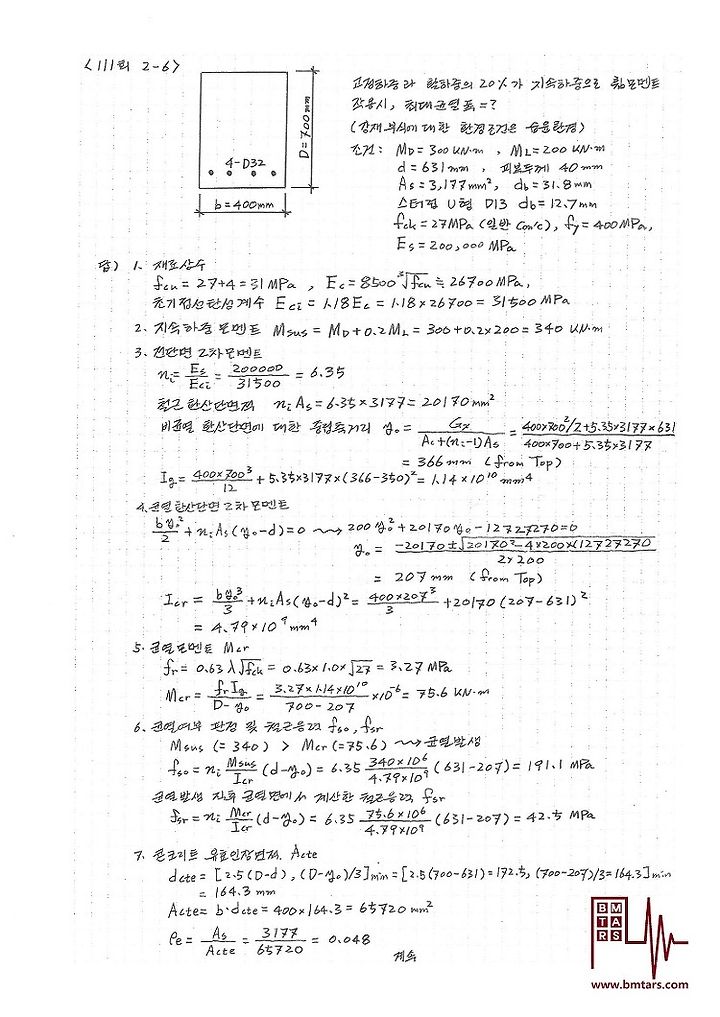 <111회 2-6>
고정하중과 활하중의 20%가 지속하중으로 휨모멘트
작용시, 최대균열폭=?
(강재부식에 대한 환경조건은 습윤환경)
조건: MD=300 kN·m , ML=200 kN·m
d=631mm , 피복두께 40mm
As=3,177mm², db=31.8mm
스터럽 U형 D13 db=12.7mm
fck=27MPa (일반 Con'c), fy=400MPa,
Es=200,000 MPa
4-D32
D=700mm
b=400mm
답) 1. 재료상수
fcu=27+4=31MPa , Ec=8500∛fcu≒26700MPa,
초기접선탄성계수 Eci=1.18Ec=1.18×26700=31500 MPa
2. 지속하중 모멘트 Msus=MD+0.2ML=300+0.2×200=340 kN·m
3. 전단면 2차모멘트
ni=Es/Eci=200000/31500=6.35
철근 환산단면적 niAs=6.35×3177=20170mm²
비균열 환산단면에 대한 중립축거리 yo=Gx/(Ac+(ni-1)As)=(400×700²/2+5.35×3177×631)/(400×700+5.35×3177)
=366mm (from Top)
Ig=400×700³/12+5.35×3177×(366-350)²=1.14×10¹⁰ mm⁴
4. 균열환산단면 2차모멘트
byo²/2+niAs(yo-d)=0 ⇝ 200yo²+20170yo-12727270=0
yo=(-20170±√(20170²-4×200×(12727270))/(2×200)
=207mm (from Top)
Icr=byo³/3+niAs(yo-d)²=400×207³/3+20170(207-631)²
=4.79×10⁹mm⁴
5. 균열모멘트 Mcr
fr=0.63λ√fck=0.63×1.0×√27=3.27 MPa
Mcr=frIg/(D-yo)=3.27×1.14×10¹⁰/(700-207)×10⁻⁶=75.6 kN·m
6. 균열여부 판정 및 철근응력 fso, fsr
Msus(=340) > Mcr(=75.6) ⇝ 균열발생
fso=ni Msus/Icr (d-yo)=6.35 340×10⁶/4.79×10⁹ (631-207)=191.1 MPa
균열발생 직후 균열면에서 계산한 철근응력 fsr
fsr=ni Mcr/Icr (d-yo)=6.35 75.6×10⁶/4.79×10⁹ (631-207)=42.5 MPa
7. 콘크리트 유효인장면적 Acte
dcte=[2.5(D-d), (D-yo)/3]min=[2.5(700-631)=172.5, (700-207)/3=164.3]min
=164.3 mm
Acte=b·dcte=400×164.3=65720 mm²
ρe=As/Acte=3177/65720=0.048
계속
BM
TA
RS
www.bmtars.com